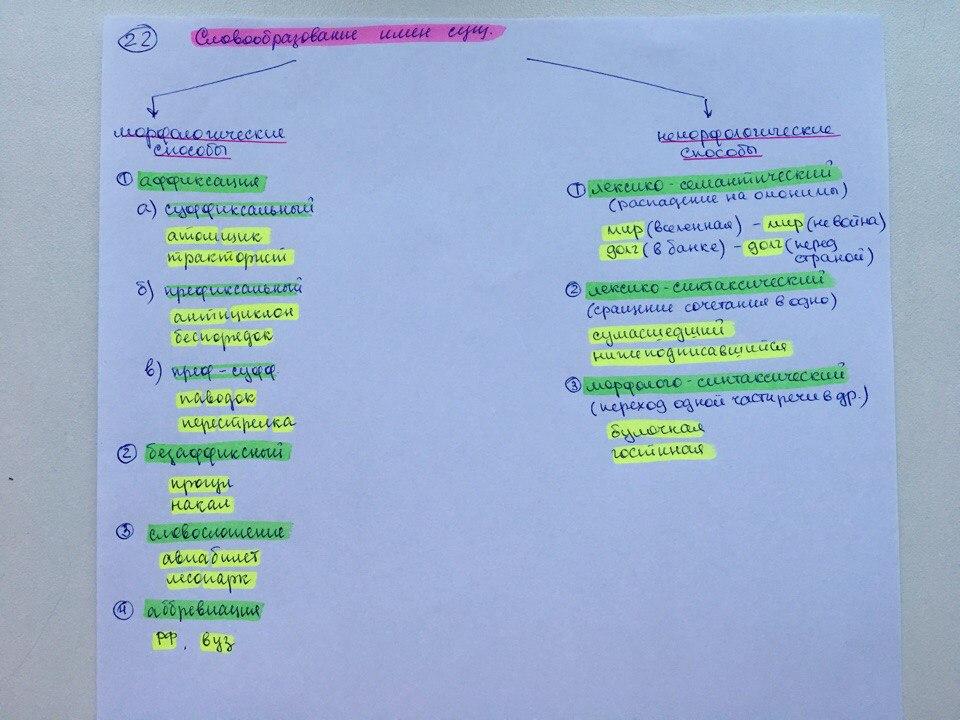 22 Словообразование имен сущ.
морфологические
способы
1 аффиксация
а) суффиксальный
атомщик
тракторист
б) префиксальный
антициклон
беспорядок
в) преф-суфф.
паводок
перестрелка
2 безаффиксный
прогул
накал
3 словосложение
авиабилет
лесопарк
4 аббревиация
РФ, вуз
неморфологические
способы
1 лексико-семантический
(распадение на омонимы)
мир (вселенная) - мир (не война)
долг (в банке) - долг (перед
страной)
2 лексико-синтаксический
(сращение сочетания в одно)
сумасшедший
нижеподписавшийся
3 морфолого-синтаксический
(переход одной части речи в др.)
булочная
гостиная